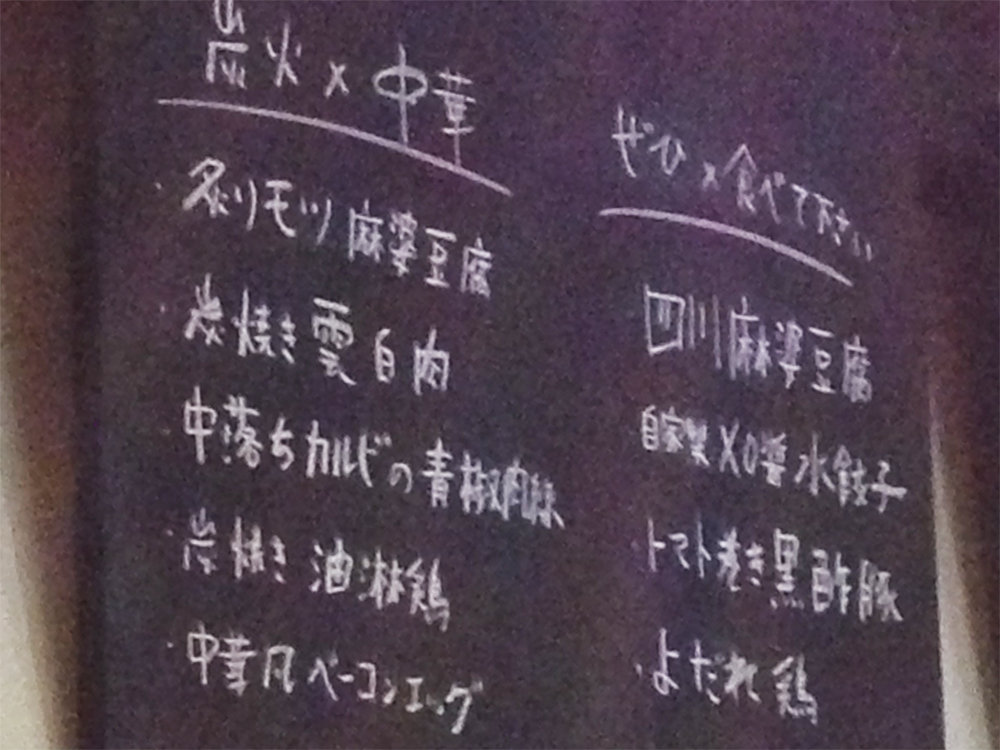 炭火×中華
・炙りモツ麻婆豆腐
・炭焼き雲白肉
・中落ちカルビの青椒肉絲
・炭焼き油淋鶏
・中華風ベーコンエッグ
ぜひ×食べて下さい
・四川麻婆豆腐
・自家製XO醤水餃子
・トマト巻き黒酢豚
・よだれ鶏